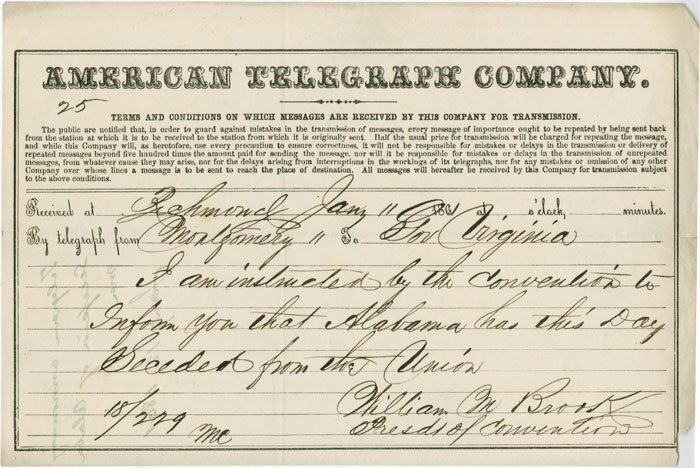 AMERICAN TELEGRAPH COMPANY.
25
TERMS AND CONDITIONS ON WHICH MESSAGES ARE RECEIVED BY THIS COMPANY FOR TRANSMISSION.
The public are notified that, in order to guard against mistakes in the transmission of messages, every message of importance ought to be repeated by being sent back
from the station at which it is to be received to the station from which it is originally sent. Half the usual price for transmission will be charged for repeating the message,
and while this Company will, as heretofore, use every precaution to ensure correctness, it will not be responsible for mistakes or delays in the transmission or delivery of
repeated messages beyond five hundred times the amount paid for sending the message, nor will it be responsible for mistakes or delays in the transmission of unrepeated
messages, from whatever cause they may arise, nor for the delays arising from interruptions in the workings of its telegraphs, nor for any mistakes or omission of any other
Company over whose lines a message is to be sent to reach the place of destination. All messages will hereafter be received by this Company for transmission subject
to the above conditions.
Received at Richmond Jany " 1861 at o'clock, minutes.
By telegraph from Montgomery " To Gov Virginia
I am instructed by the convention to
Inform you that Alabama has this Day
Seceded from the Union
William M Brooks
18/229 Mc Presdt of Convention